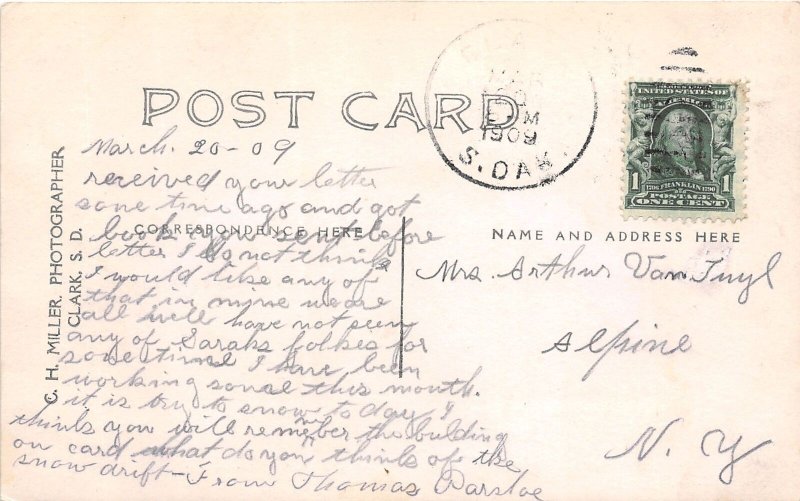 POST CARD
MAR
20
M
1909
S. DAK.
UNITED STATES OF AMERICA
1 1
1706 FRANKLIN 1790
POSTAGE
ONE CENT
C. H. MILLER, PHOTOGRAPHER
CLARK, S. D.
CORRESPONDENCE HERE
NAME AND ADDRESS HERE
March. 20-09
received your letter
some time ago and got
book you sent before
letter I do not think
I would like any of
that in mine we are
all well have not seen
any of Sarahs folkes for
some time I have been
working some this month.
it is try to snow to day I
think you will remember the building
on card what do you think of the
snow drift - From Thomas Parsloe
Mrs. Arthur Van Tuyl
Alpine
N. Y